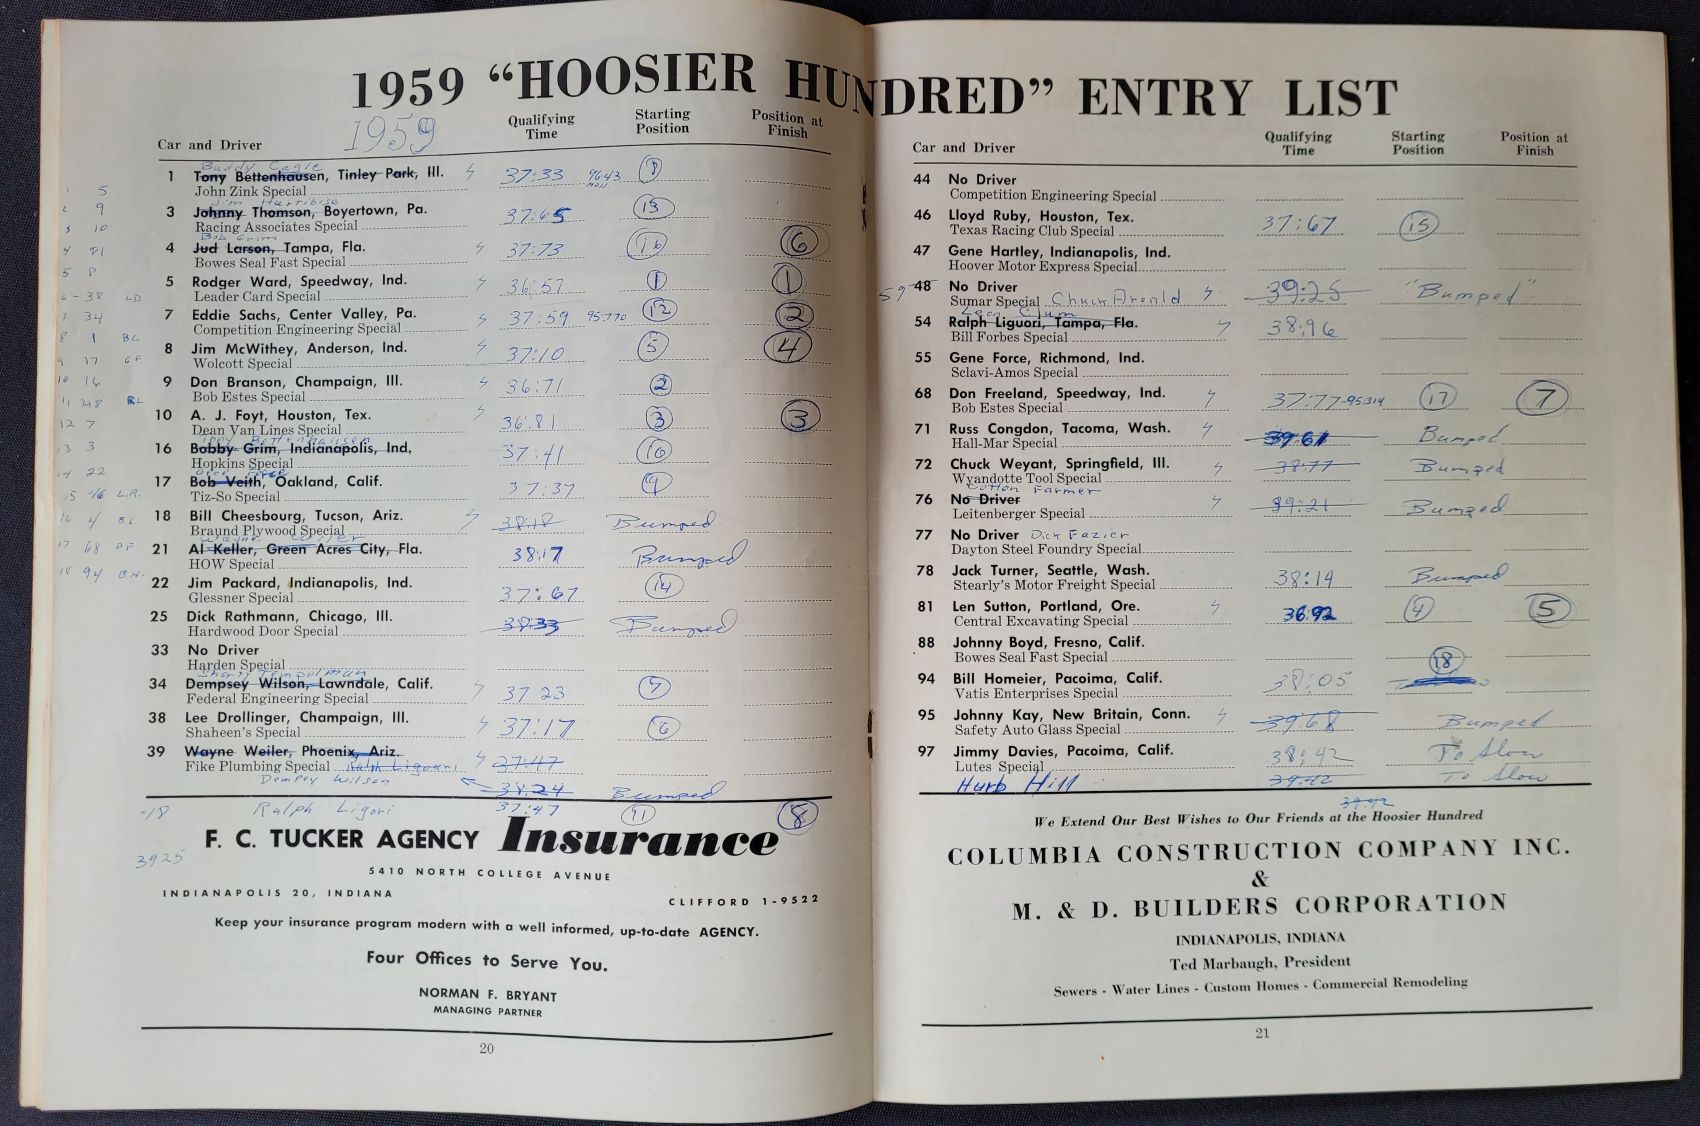 1959 "HOOSIER HUNDRED" ENTRY LIST
1959
Car and Driver Qualifying Time Starting Position Position at Finish
Buddy Cagle
1 Tony Bettenhausen, Tinley Park, Ill. 37:33 9643 8
John Zink Special
Jim Hurtibise
3 Johnny Thomson, Boyertown, Pa. 37:65 13
Racing Associates Special
Bob Grim
4 Jud Larson, Tampa, Fla. 37:73 16 6
Bowes Seal Fast Special
5 Rodger Ward, Speedway, Ind. 36:57 1 1
Leader Card Special
7 Eddie Sachs, Center Valley, Pa. 37:59 95.770 12 2
Competition Engineering Special
8 Jim McWithey, Anderson, Ind. 37:10 5 4
Wolcott Special
9 Don Branson, Champaign, Ill. 36:71 2
Bob Estes Special
10 A. J. Foyt, Houston, Tex. 36:81 3 3
Dean Van Lines Special
Tony Bettenhausen
16 Bobby Grim, Indianapolis, Ind. 37:41 10
Hopkins Special
17 Bob Veith, Oakland, Calif. 37:37 9
Tiz-So Special
18 Bill Cheesbourg, Tucson, Ariz. 38:18 Bumped
Braund Plywood Special
Wayne Wiler
21 Al Keller, Green Acres City, Fla. 38:17 Bumped
HOW Special
22 Jim Packard, Indianapolis, Ind. 37:67 14
Glessner Special
25 Dick Rathmann, Chicago, Ill. 38:33 Bumped
Hardwood Door Special
33 No Driver
Harden Special
Shorty Templman
34 Dempsey Wilson, Lawndale, Calif. 37 23 7
Federal Engineering Special
38 Lee Drollinger, Champaign, Ill. 37:17 6
Shaheen's Special
39 Wayne Weiler, Phoenix, Ariz. 37:47
Fike Plumbing Special Ralph Ligouri
Dempey Wilson 38:24 Bumped
48 Ralph Ligori 37:47 11 8
3925
F. C. TUCKER AGENCY Insurance
5410 NORTH COLLEGE AVENUE
INDIANAPOLIS 20, INDIANA CLIFFORD 1-9522
Keep your insurance program modern with a well informed, up-to-date AGENCY.
Four Offices to Serve You.
NORMAN F. BRYANT
MANAGING PARTNER
20
Car and Driver Qualifying Time Starting Position Position at Finish
44 No Driver
Competition Engineering Special
46 Lloyd Ruby, Houston, Tex. 37:67 15
Texas Racing Club Special
47 Gene Hartley, Indianapolis, Ind.
Hoover Motor Express Special
59 48 No Driver 39:25 "Bumped"
Sumar Special Chuck Arnold
Leon Clum
54 Ralph Liguori, Tampa, Fla. 38:96
Bill Forbes Special
55 Gene Force, Richmond, Ind.
Sclavi-Amos Special
68 Don Freeland, Speedway, Ind. 37:77-95314 17 7
Bob Estes Special
71 Russ Congdon, Tacoma, Wash. 39:61 Bumped
Hall-Mar Special
72 Chuck Weyant, Springfield, Ill. 38:77 Bumped
Wyandotte Tool Special
Cotton Farmer
76 No Driver 39:21 Bumped
Leitenberger Special
77 No Driver Dick Fazier
Dayton Steel Foundry Special
78 Jack Turner, Seattle, Wash. 38:14 Bumped
Stearly's Motor Freight Special
81 Len Sutton, Portland, Ore. 36:92 4 5
Central Excavating Special
88 Johnny Boyd, Fresno, Calif.
Bowes Seal Fast Special
94 Bill Homeier, Pacoima, Calif. 38:05 18
Vatis Enterprises Special
95 Johnny Kay, New Britain, Conn. 39:68 Bumped
Safety Auto Glass Special
97 Jimmy Davies, Pacoima, Calif. 38:42 To Slow
Lutes Special
Hurb Hill 39:42 To Slow
39:92
We Extend Our Best Wishes to Our Friends at the Hoosier Hundred
COLUMBIA CONSTRUCTION COMPANY INC.
&
M. & D. BUILDERS CORPORATION
INDIANAPOLIS, INDIANA
Ted Marbaugh, President
Sewers - Water Lines - Custom Homes - Commercial Remodeling
21